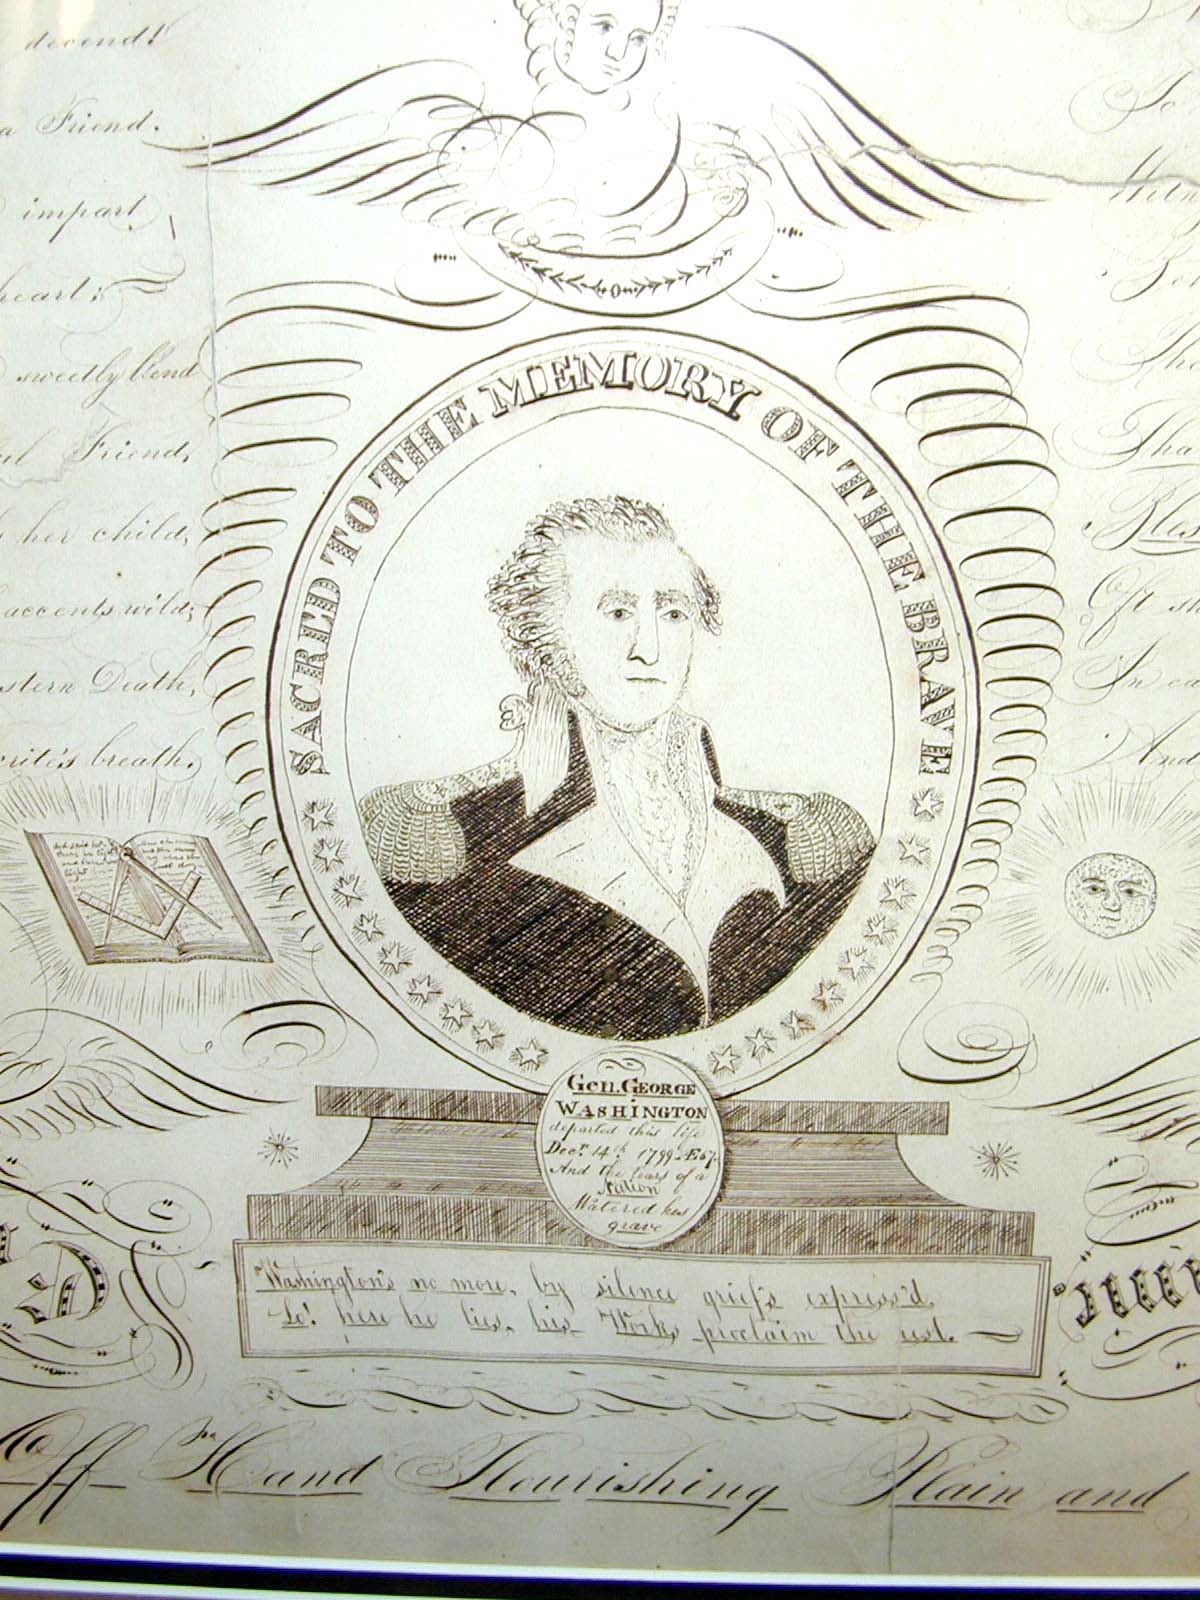 decend!
a Friend.
impart
heart;
sweetly blend
Friend,
her child,
accents wild;
stern Death,
breath.
To
Tha
Bles
Oft
In ca
And
SACRED TO THE MEMORY OF THE BRAVE
Gen. GEORGE
WASHINGTON
departed this life
Decr. 14th 1799 Æ 67.
And the tears of a
Nation
Watered his
grave
Washington's no more, by silence grief's express'd,
Lo! here he lies, his Works proclaim the rest.
Off Hand Flourishing Plain and